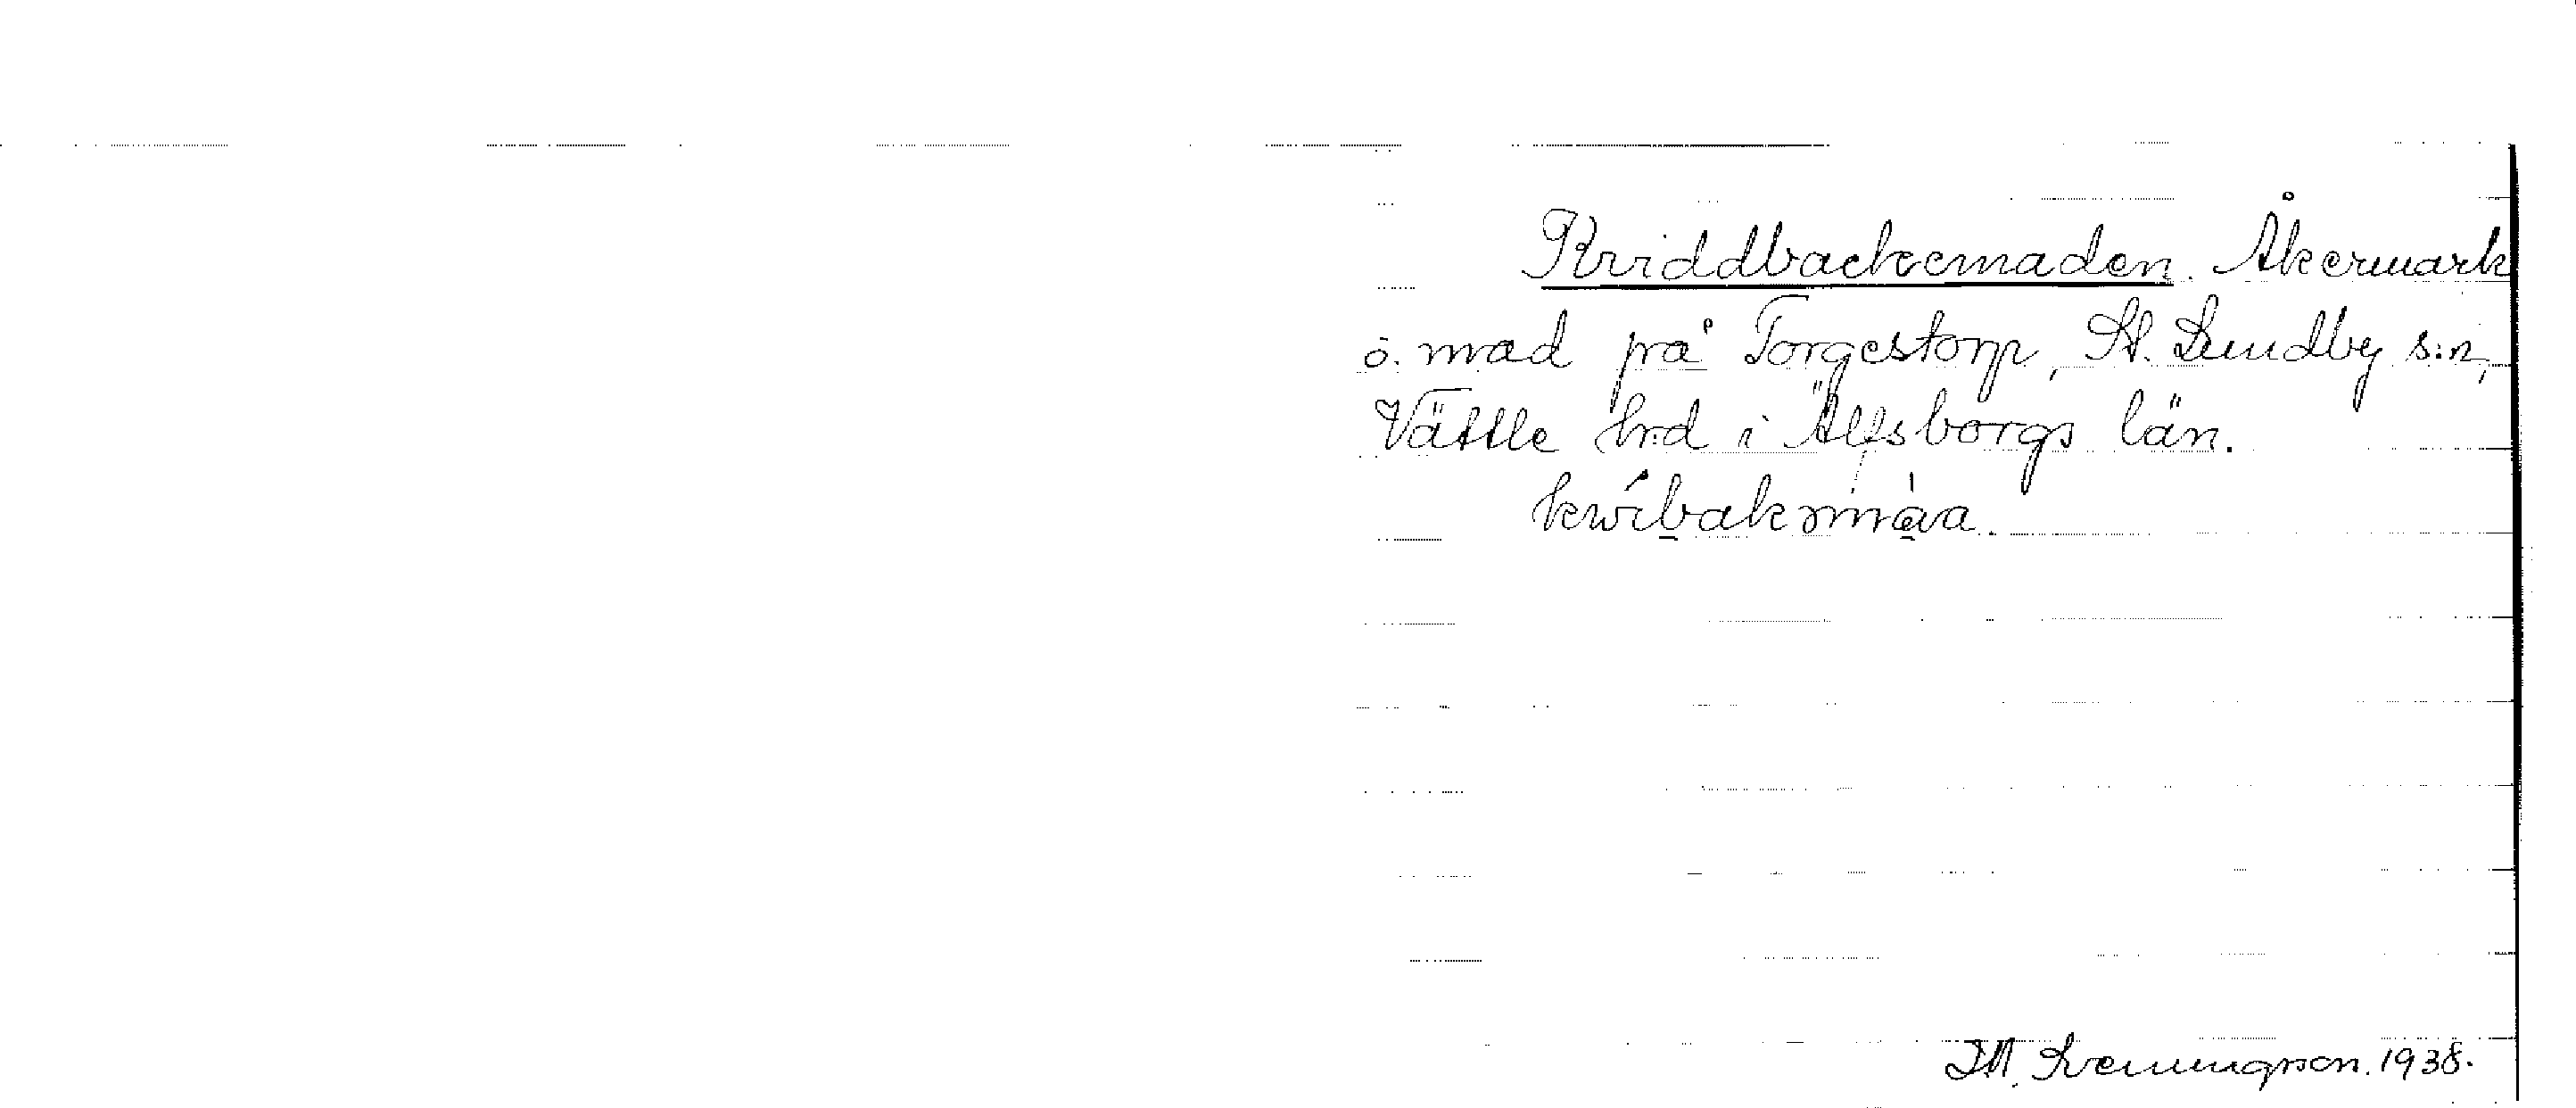 Kviddbackemaden. Åkermark
o. mad på Torgestorp, St. Lundby s:n,
Vättle hrd i Älfsborgs län.
kwíbakmàa.
I.M. Svenungsson. 1938.